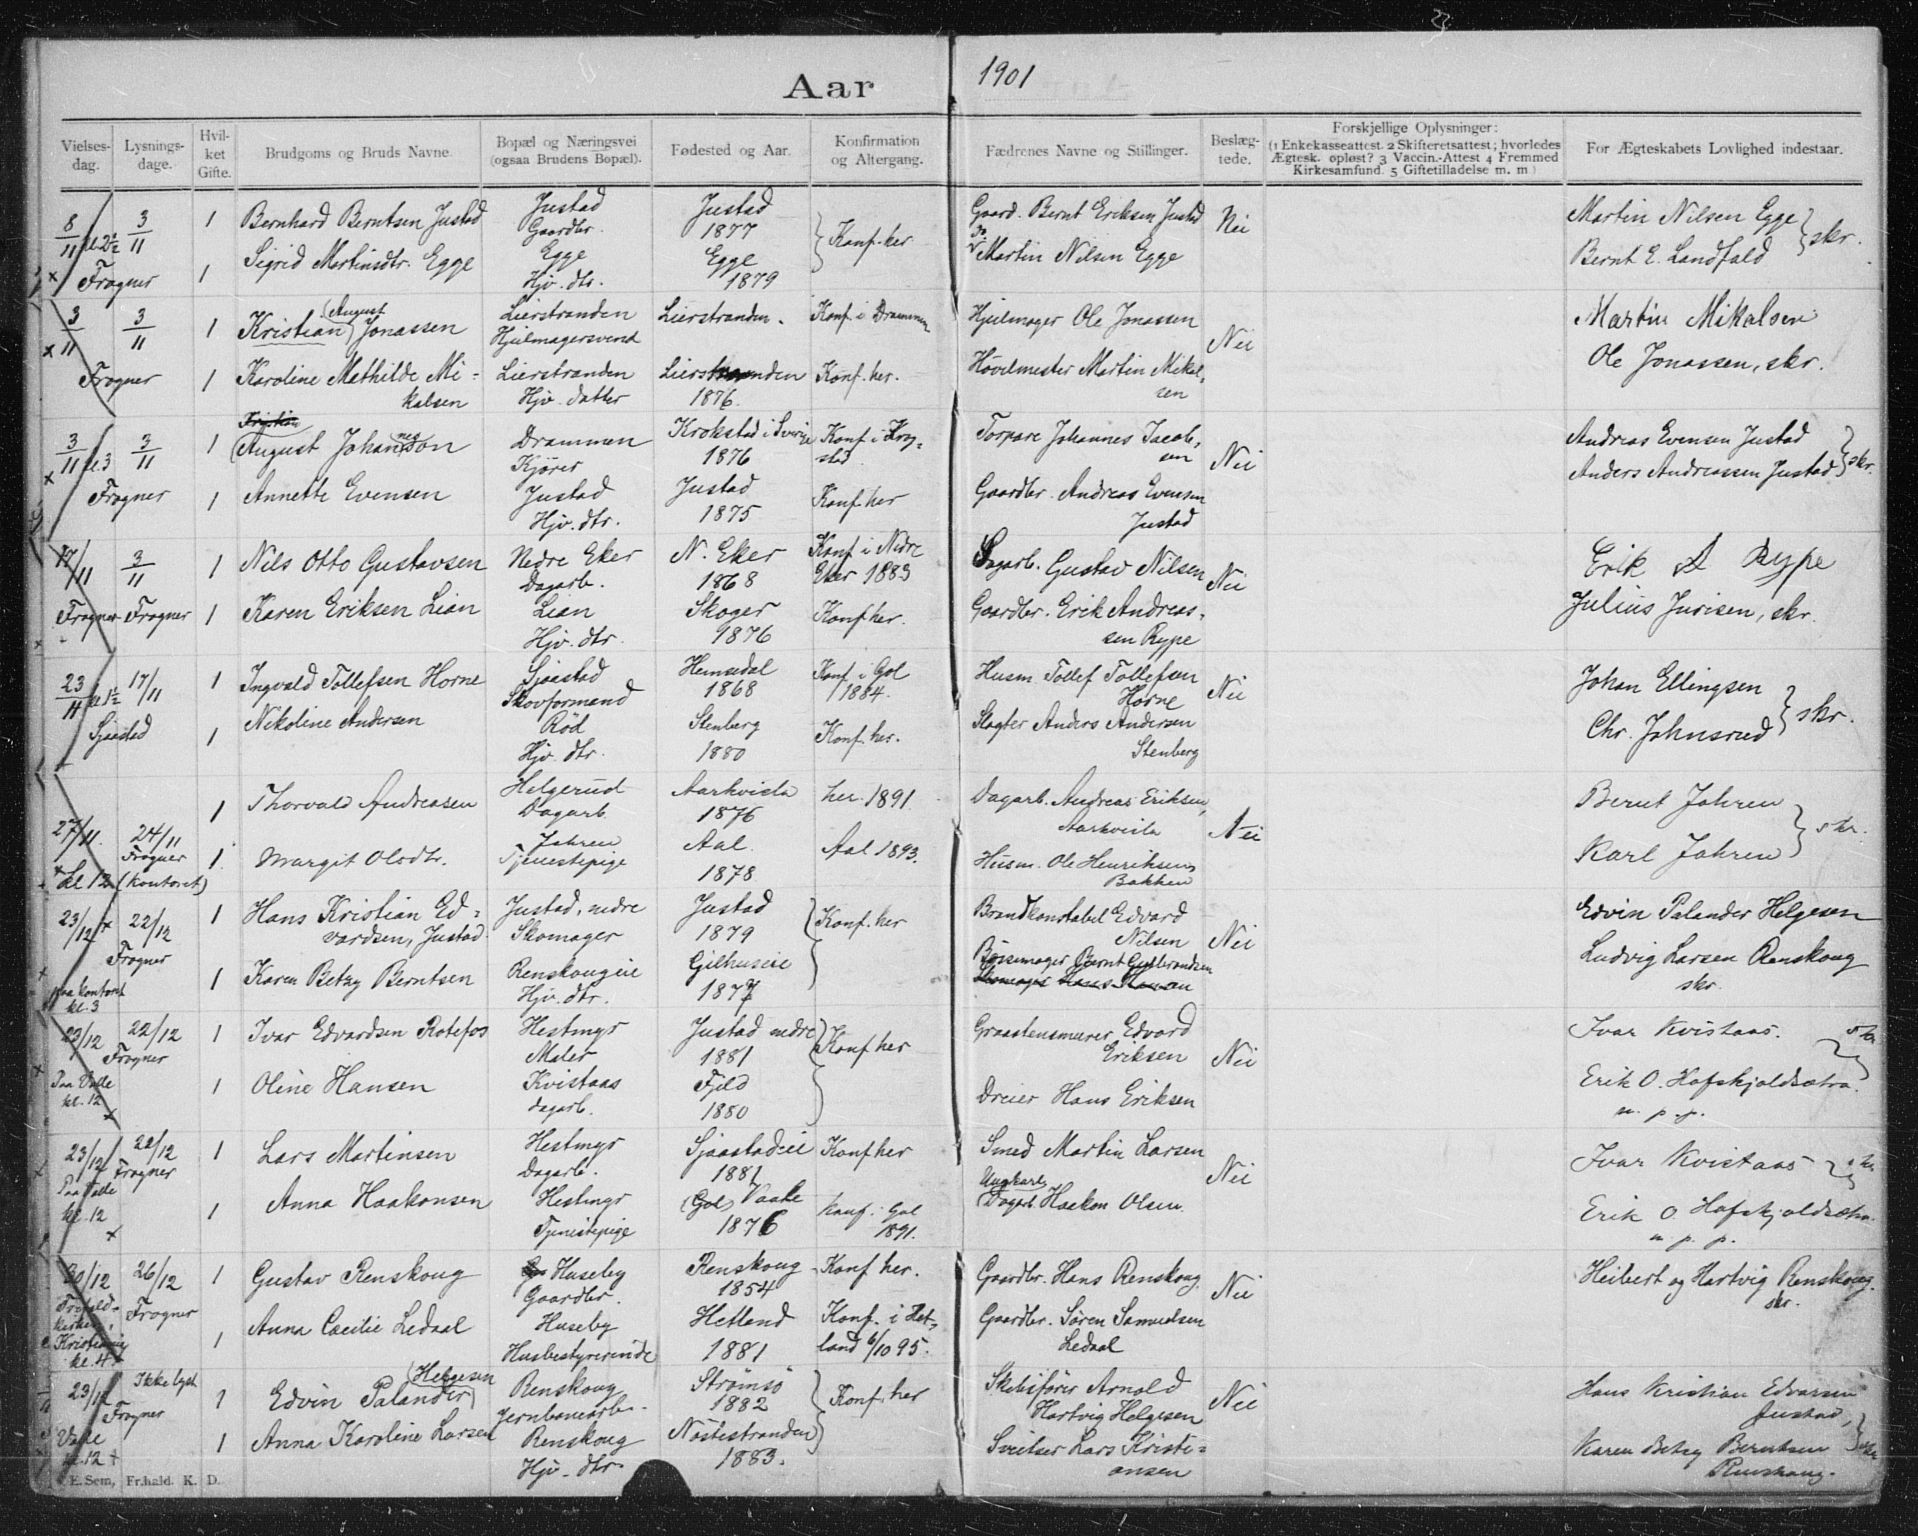 Aar 1901
Vielses-dag. Lysnings-dage. Hvil-ket Gifte. Brudgoms og Bruds Navne. Bopæl og Næringsvei (ogsaa Brudens Bopæl). Fødested og Aar. Konfirmation og Altergang. Fædrenes Navne og Stillinger. Beslæg-tede. Forskjellige Oplysninger: (1 Enkekasseattest. 2 Skifteretsattest; hvorledes Ægtesk. opløst? 3 Vaccin.-Attest 4 Fremmed Kirkesamfund. 5 Giftetilladelse m. m) For Ægteskabets Lovlighed indestaar.
8/11 kl. 2½ 3/11 1 Bernhard Berntsen Justad Justad Gaardbr. Justad 1877 Konf. her Gaard. Bernt Eriksen Justad Nei Martin Nilsen Egge
Frogner 1 Sigrid Martinsdtr. Egge Egge Hjv. dtr. Egge 1879 Martin Nilsen Egge Bernt E. Landfald skr.
3/11 3/11 1 Kristian (August) Jonassen Lierstranden Hjulmagersvend Lierstranden. Konf. i Drammen Hjulmager Ole Jonassen Nei Martin Mikalsen
Frogner 1 Karoline Mathilde Mi-kalsen Lierstranden Hjv. datter Lierstranden 1876. Konf. her. Høvlmester Martin Mikal-sen Ole Jonassen, skr.
3/11 kl. 3 3/11 1 August Johanson Drammen Kjører Krokstad i Sverige 1876 Konf. i Krog-stad Torpare Johannes Jacob-sen Nei Andreas Evensen Justad
Frogner 1 Annette Evensen Justad Hjv. dtr. Justad 1875 Konf. her Gaardbr. Andreas Evensen Justad Anders Andreassen Justad skr.
17/11 3/11 1 Nils Otto Gustavsen Nedre Eker Dagarb. N. Eker 1868 Konf. i Nedre Eker 1883 Dagarb. Gustav Nilsen Nei Erik A Rype
Frogner Frogner 1 Karen Eriksen Lian Lian Hjv. dtr. Skoger 1876 Konf her. Gaardbr. Erik Andreas-sen Rype Julius Jurisen, skr.
23/11 kl 1½ 17/11 1 Ingvald Tollefsen Horne Sjaastad Skovformand Hemsedal 1868 Konf. i Gol 1884. Husm. Tollef Tollefsen Horne Nei Johan Ellingsen
Sjaastad 1 Nikoline Andersen Rød Hjv. dtr. Stenberg 1880 Konf. her. Slagter Anders Andersen Stenberg Chr. Johnsrud skr.
27/11. 24/11 Frogner 1 Thorvald Andreasen Helgerud Dagarb. Aarkvisla 1876 her 1891 Dagarb. Andreas Eriksen, Aarkvisla Nei Bernt Jahren
kl 12 (kontoret) 1 Margit Olsdtr. Jahren Tjenestepige Aal. 1878 Aal 1893. Husm. Ole Henriksen Bakken Karl Jahren skr.
23/12 22/12 Frogner 1 Hans Kristian Ed-vardsen, Justad Justad, nedre Skomager Justad 1879 Konf. her Brandkonstabel Edvard Nilsen Nei Edvin Palander Helgesen
paa kontoret kl. 3 1 Karen Betzy Berntsen Renskougeie Hjv. dtr. Gilhuseie 1877 Bøssemager Bernt Gulbrandsen Ludvig Larsen Renskoug skr.
23/12 22/12 Frogner 1 Ivar Edvardsen Rotefos Hestmyr Maler Justad nedre 1881 Konf her Graastensmurer Edvard Eriksen Nei Ivar Kvistaas. skr
Paa Valle kl. 12 1 Oline Hansen Kvistaas dagarb. Fjeld 1880 Dreier Hans Eriksen Erik O. Hofskjoldsætra. m. p. p.
23/12 22/12 Frogner 1 Lars Martinsen Hestmyr Dagarb. Sjaastadeie 1881 Konf her Smed Martin Larsen Nei Ivar Kvistaas skr
Paa Valle kl. 12 1 Anna Haakonsen Hestmyr Tjenestepige (Gol) Vaale 1876 Konf. i Gol 1891. Ungkarl Dagarb. Haakon Olsen. Erik O. Hofskjoldsætra. m. p. p.
30/12 26/12 Frogner 1 Gustav Renskoug Huseby Gaardbr. Renskoug 1854 Konf her. Gaardbr. Hans Renskoug. Nei Heibert og Hartvig Renskoug. skr.
Kristiania kl. 4 1 Anna Cæcilie Ledaal Huseby Husbestyrerinde Hetland 1881 Konf. i Het-land 6/10 95. Gaardbr. Søren Samuelsen Ledaal
23/12 Ikke lyst Frogner 1 Edvin Palander (Helgesen) Renskoug Jernbanearb. Strømsø 1882 Konf. her Skibsfører Arnold Hartvig Helgesen Nei Hans Kristian Edvarsen Justad,
Valle kl. 12 1 Anna Karoline Larsen Renskoug Hjv. dtr Nøstestranden 1883. Sveitser Lars Kristi-ansen Karen Betzy Berntsen Renskoug. skr
E. Sem, Fr.hald. K. D.